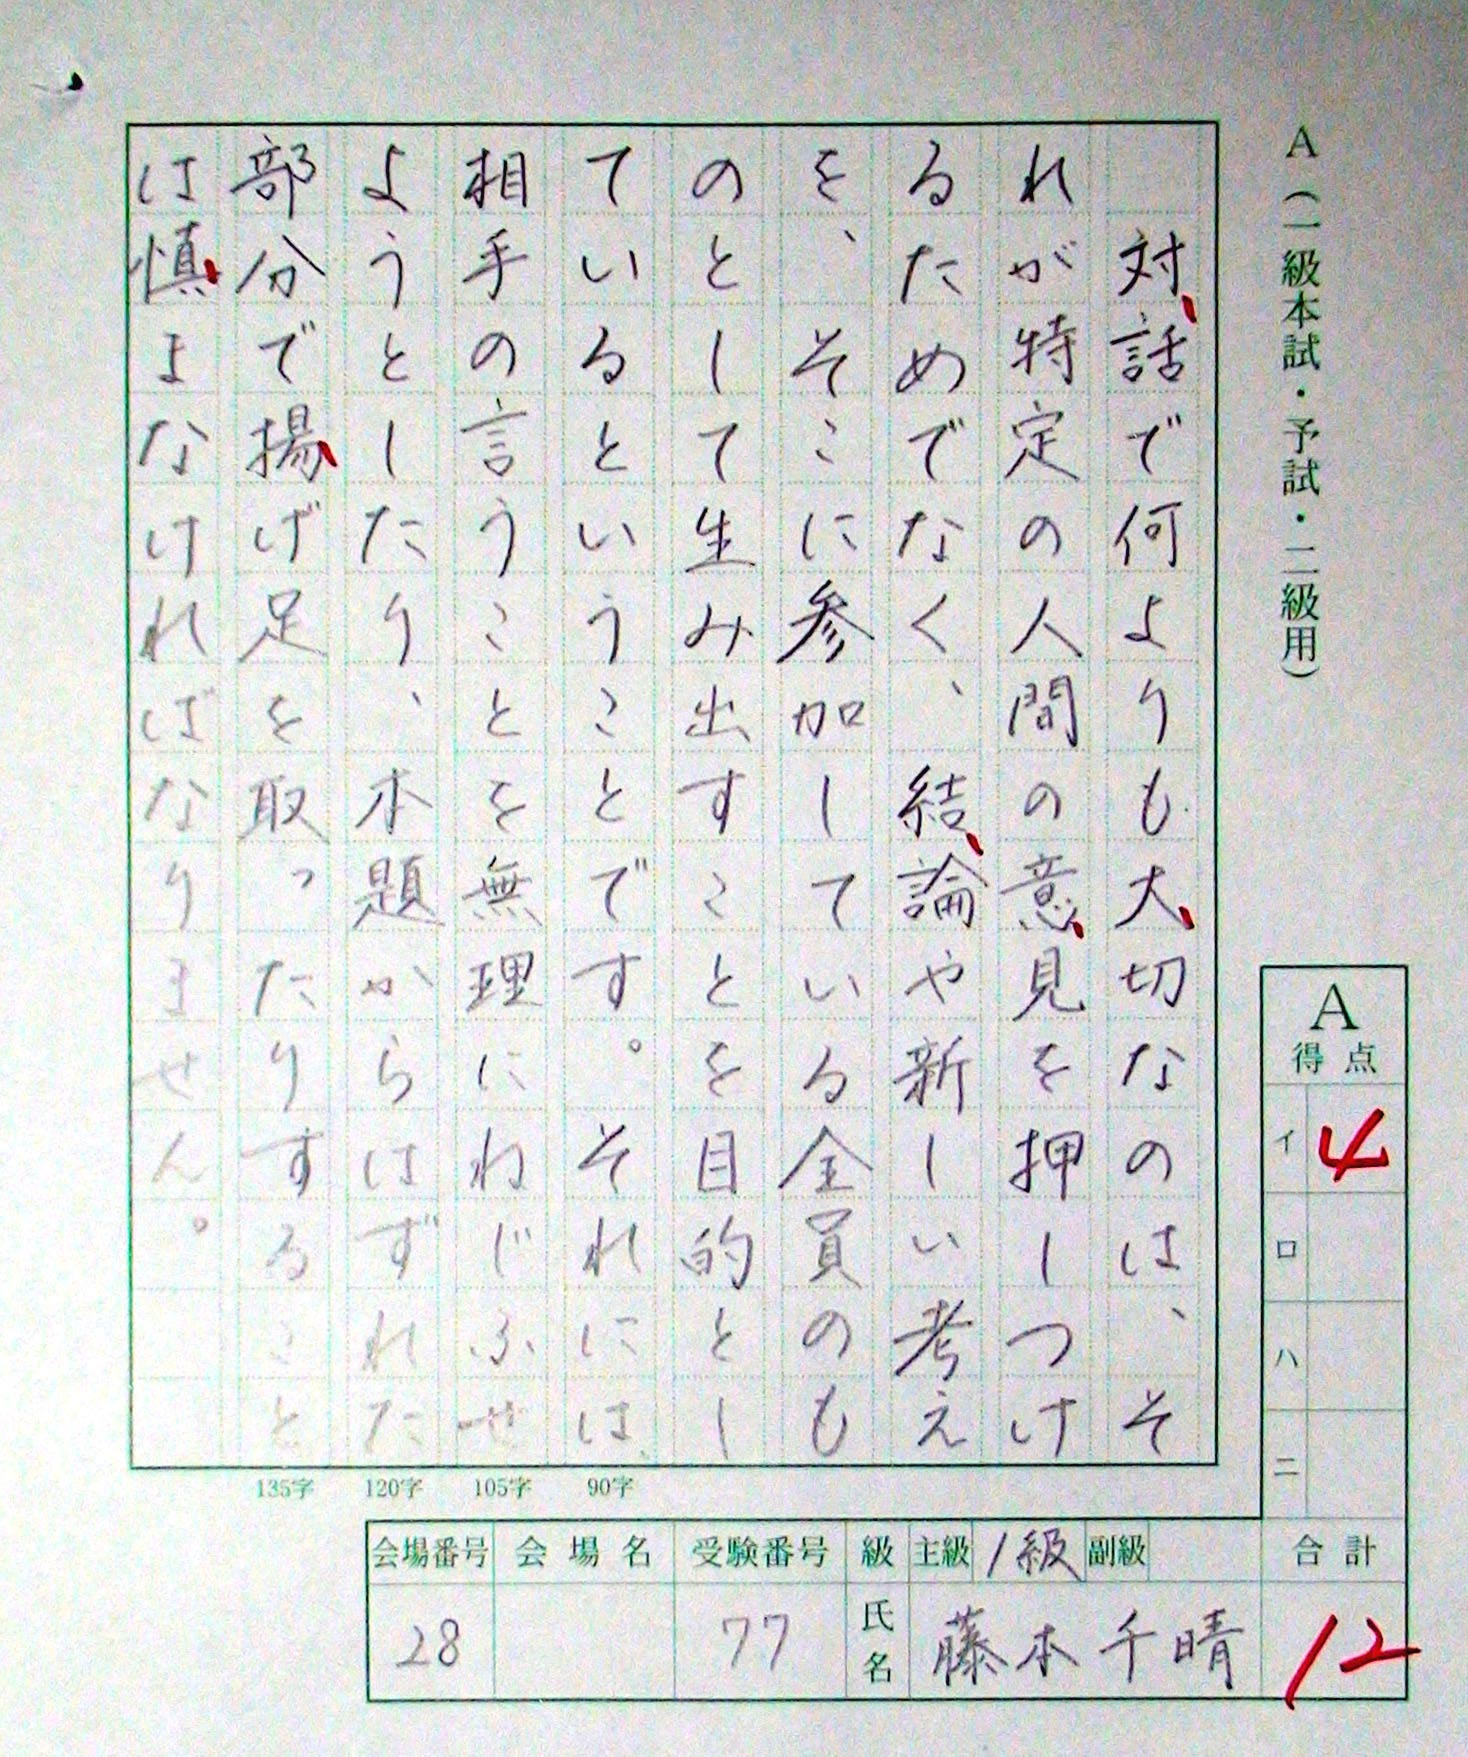 A(一級本試・予試・二級用)
対話で何よりも大切なのは、そ
れが特定の人間の意見を押しつけ
るためでなく、結論や新しい考え
を、そこに参加している全員のも
のとして生み出すことを目的とし
ているということです。それには、
相手の言うことを無理にねじふせ
ようとしたり、本題からはずれた
部分で揚げ足を取ったりすること
は慎まなければなりません。
90字
105字
120字
135字
A
得点
イ 4
ロ
ハ
ニ
合計
12
会場番号 会場名 受験番号 級 主級 1級 副級
28 77 氏名 藤本千晴